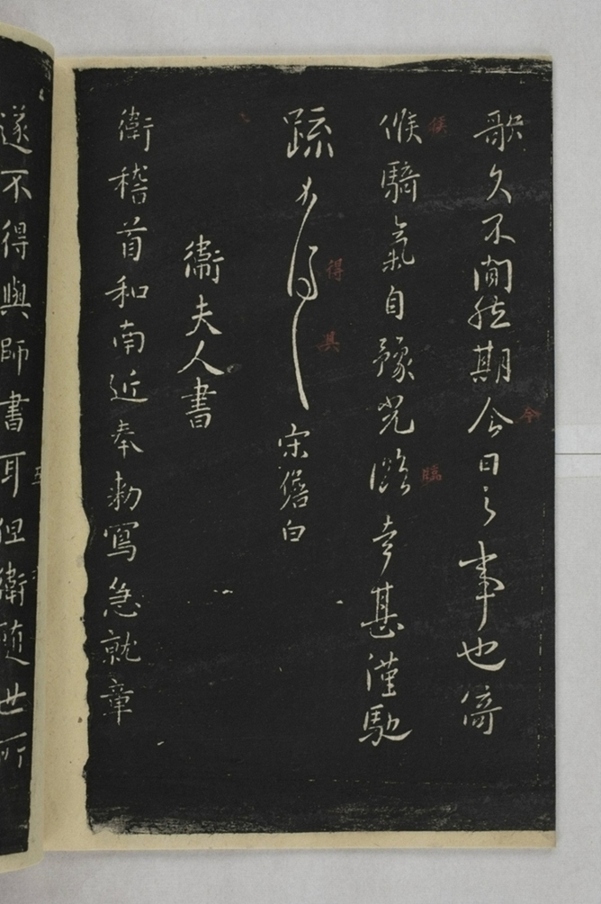 歌久不聞然期今日之事也倚
今
候騎氣自豫光臨幸甚謹馳
候
臨
疏不得具 宋儋白
得
具
衛夫人書
衛稽首和南近奉勅寫急就章
遂不得與師書耳但衛隨世所